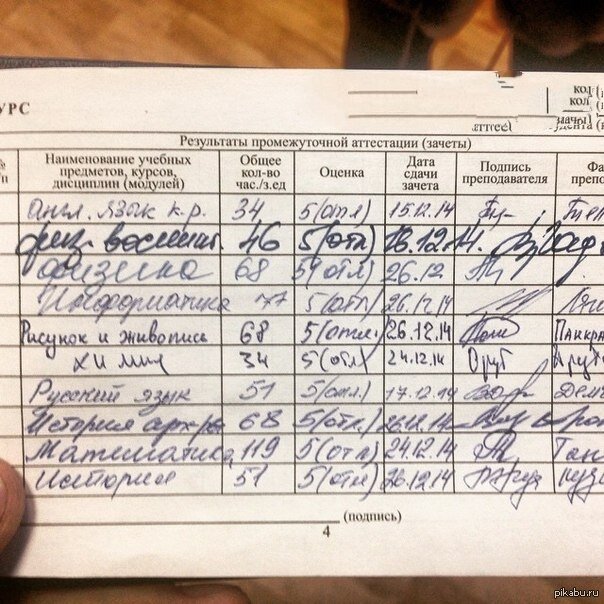 УРС
Результаты промежуточной аттестации (зачеты)
Наименование учебных предметов, курсов, дисциплин (модулей) Общее кол-во час./з.ед Оценка Дата сдачи зачета Подпись преподавателя Фа препо
англ. язык к.р. 34 5(отл) 15.12.14
физ. воспит. 46 5(отл) 16.12.14.
физика 68 5(отл) 26.12
Информатика 77 5(отл) 26.12.14
Рисунок и живопись 68 5(отл.) 26.12.14 Панкра
химия 34 5(отл) 24.12.14
Русский язык 51 5(отл.) 17.12.14 Дем
История арх-ры 68 5(отл.) 26.12.14
Математика 119 5(отл) 24.12.14
История 51 5(отл) 26.12.14
(подпись)
4
pikabu.ru